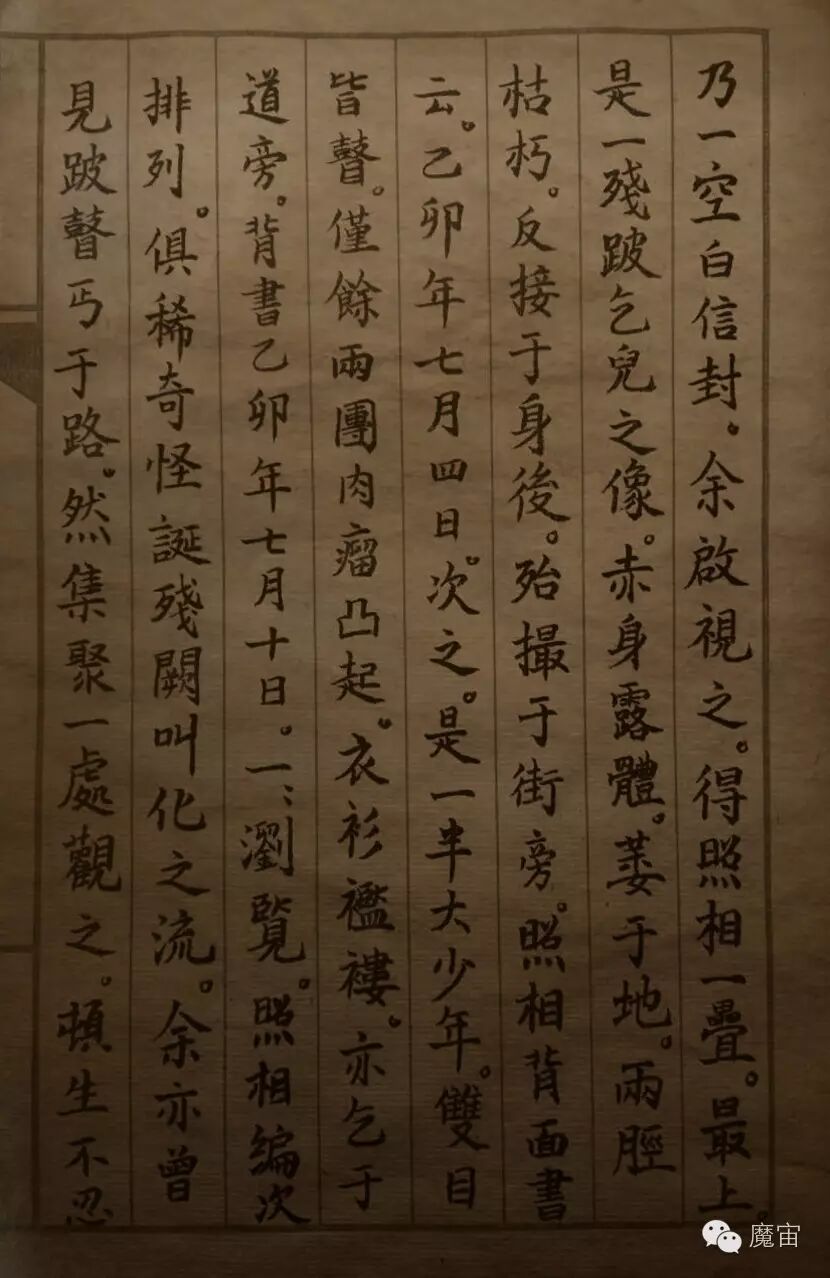 乃一空白信封。余啟視之。得照相一疊。最上。
是一殘跛乞兒之像。赤身露體。萎于地。兩脛
枯朽。反接于身後。殆撮于街旁。照相背面書
云。乙卯年七月四日。次之。是一半大少年。雙目
皆瞽。僅餘兩團肉瘤凸起。衣衫襤褸。亦乞于
道旁。背書乙卯年七月十日。一〻瀏覽。照相編次
排列。俱稀奇怪誕殘闕叫化之流。余亦曾
見跛瞽丐于路。然集聚一處觀之。頓生不忍
魔宙